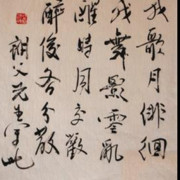 我歌月徘徊
我舞影零亂
醒時同交歡
醉後各分散
父先生